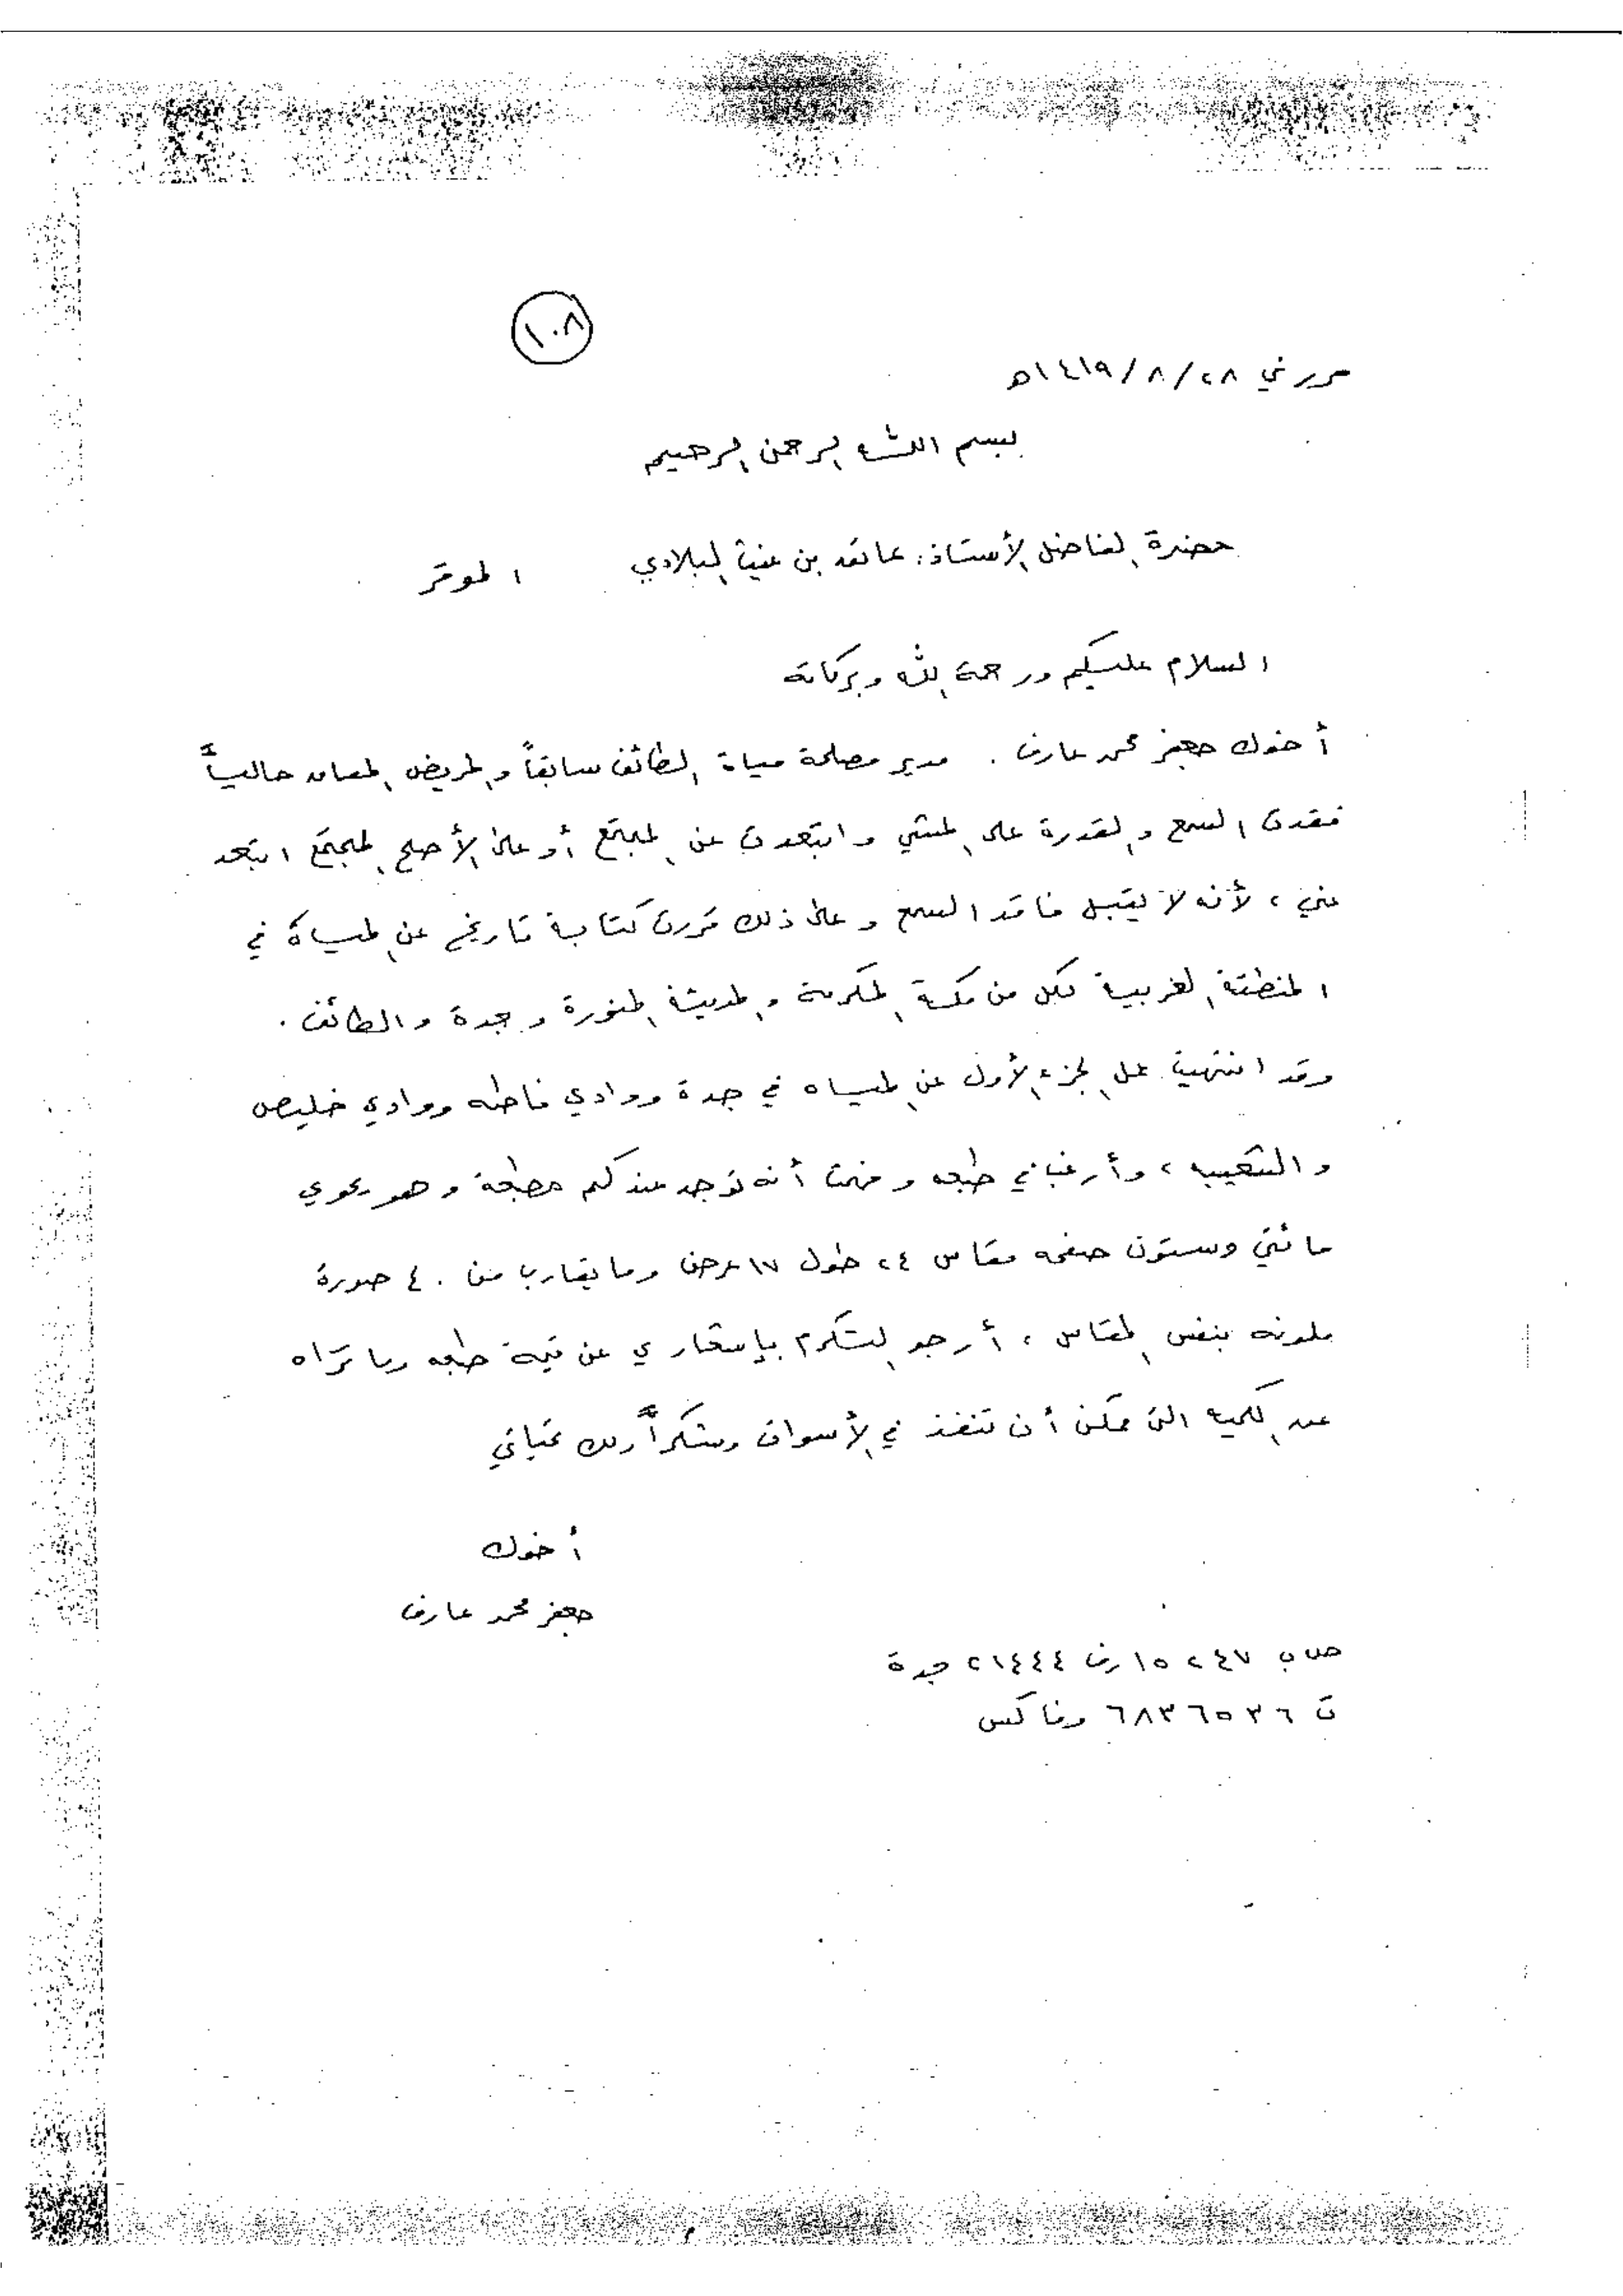 ١٠٨
حرر في ٢٨/٨/١٤١٩هـ
بسم الله الرحمن الرحيم
حضرة الفاضل الأستاذ: عاتق بن غيث البلادي الموقر
السلام عليكم ورحمة الله وبركاته
أخوك جعفر محمد عارف . مدير مصلحة مياة الطائف سابقاً والمريض المعاق حالياً
فقدت السمع والقدرة على المشي وابتعدت عن المجتمع أو على الأصح المجتمع ابتعد
عني ، لأنه لا يتقبل فاقد السمع وعلى ذلك قررت كتابة تاريخ عن المياة في
المنطقة الغربية لكل من مكة المكرمة والمدينة المنورة وجدة والطائف .
وقد انتهيت على الجزء الأول عن المياه في جدة ووادي فاطمه ووادي خليص
والشعيبه ، وأرغب في طبعه وفهمت أنه توجد عندكم مطبعة وهو يحوي
مائتي وستون صفحه مقاس ٢٤ طول ١٧ عرض وما يقارب من ٤٠ صورة
ملونه بنفس المقاس ، أرجو التكرم بإشعاري عن قيمة طبعه وما تراه
عن الكميه التي ممكن أن تنفذ في الأسواق وشكراً ولك تحياتي
أخوك
جعفر محمد عارف
ص ب ١٥٢٤٧ رف ٢١٤٤٤ جدة
ت ٦٨٣٦٥٣٦ وفاكس